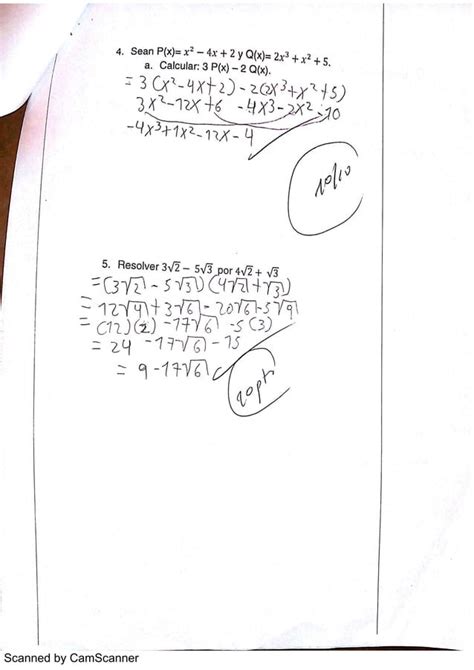 4. Sean P(x)= x² – 4x + 2 y Q(x)= 2x³ + x² + 5.
a. Calcular: 3 P(x) – 2 Q(x).
= 3 (x²-4x+2) - 2(2x³+x²+5)
3x²-12x+6 -4x3-2x²-10
-4x³+1x²-12x-4
10/10
5. Resolver 3√2 – 5√3 por 4√2 + √3
= (3√2 - 5√3) (4√2+√3)
= 12√4 + 3√6 - 20√6 - 5√9
= (12)(2) -17√6 -5(3)
= 24 -17√6 - 15
= 9 -17√6
20pts
Scanned by CamScanner